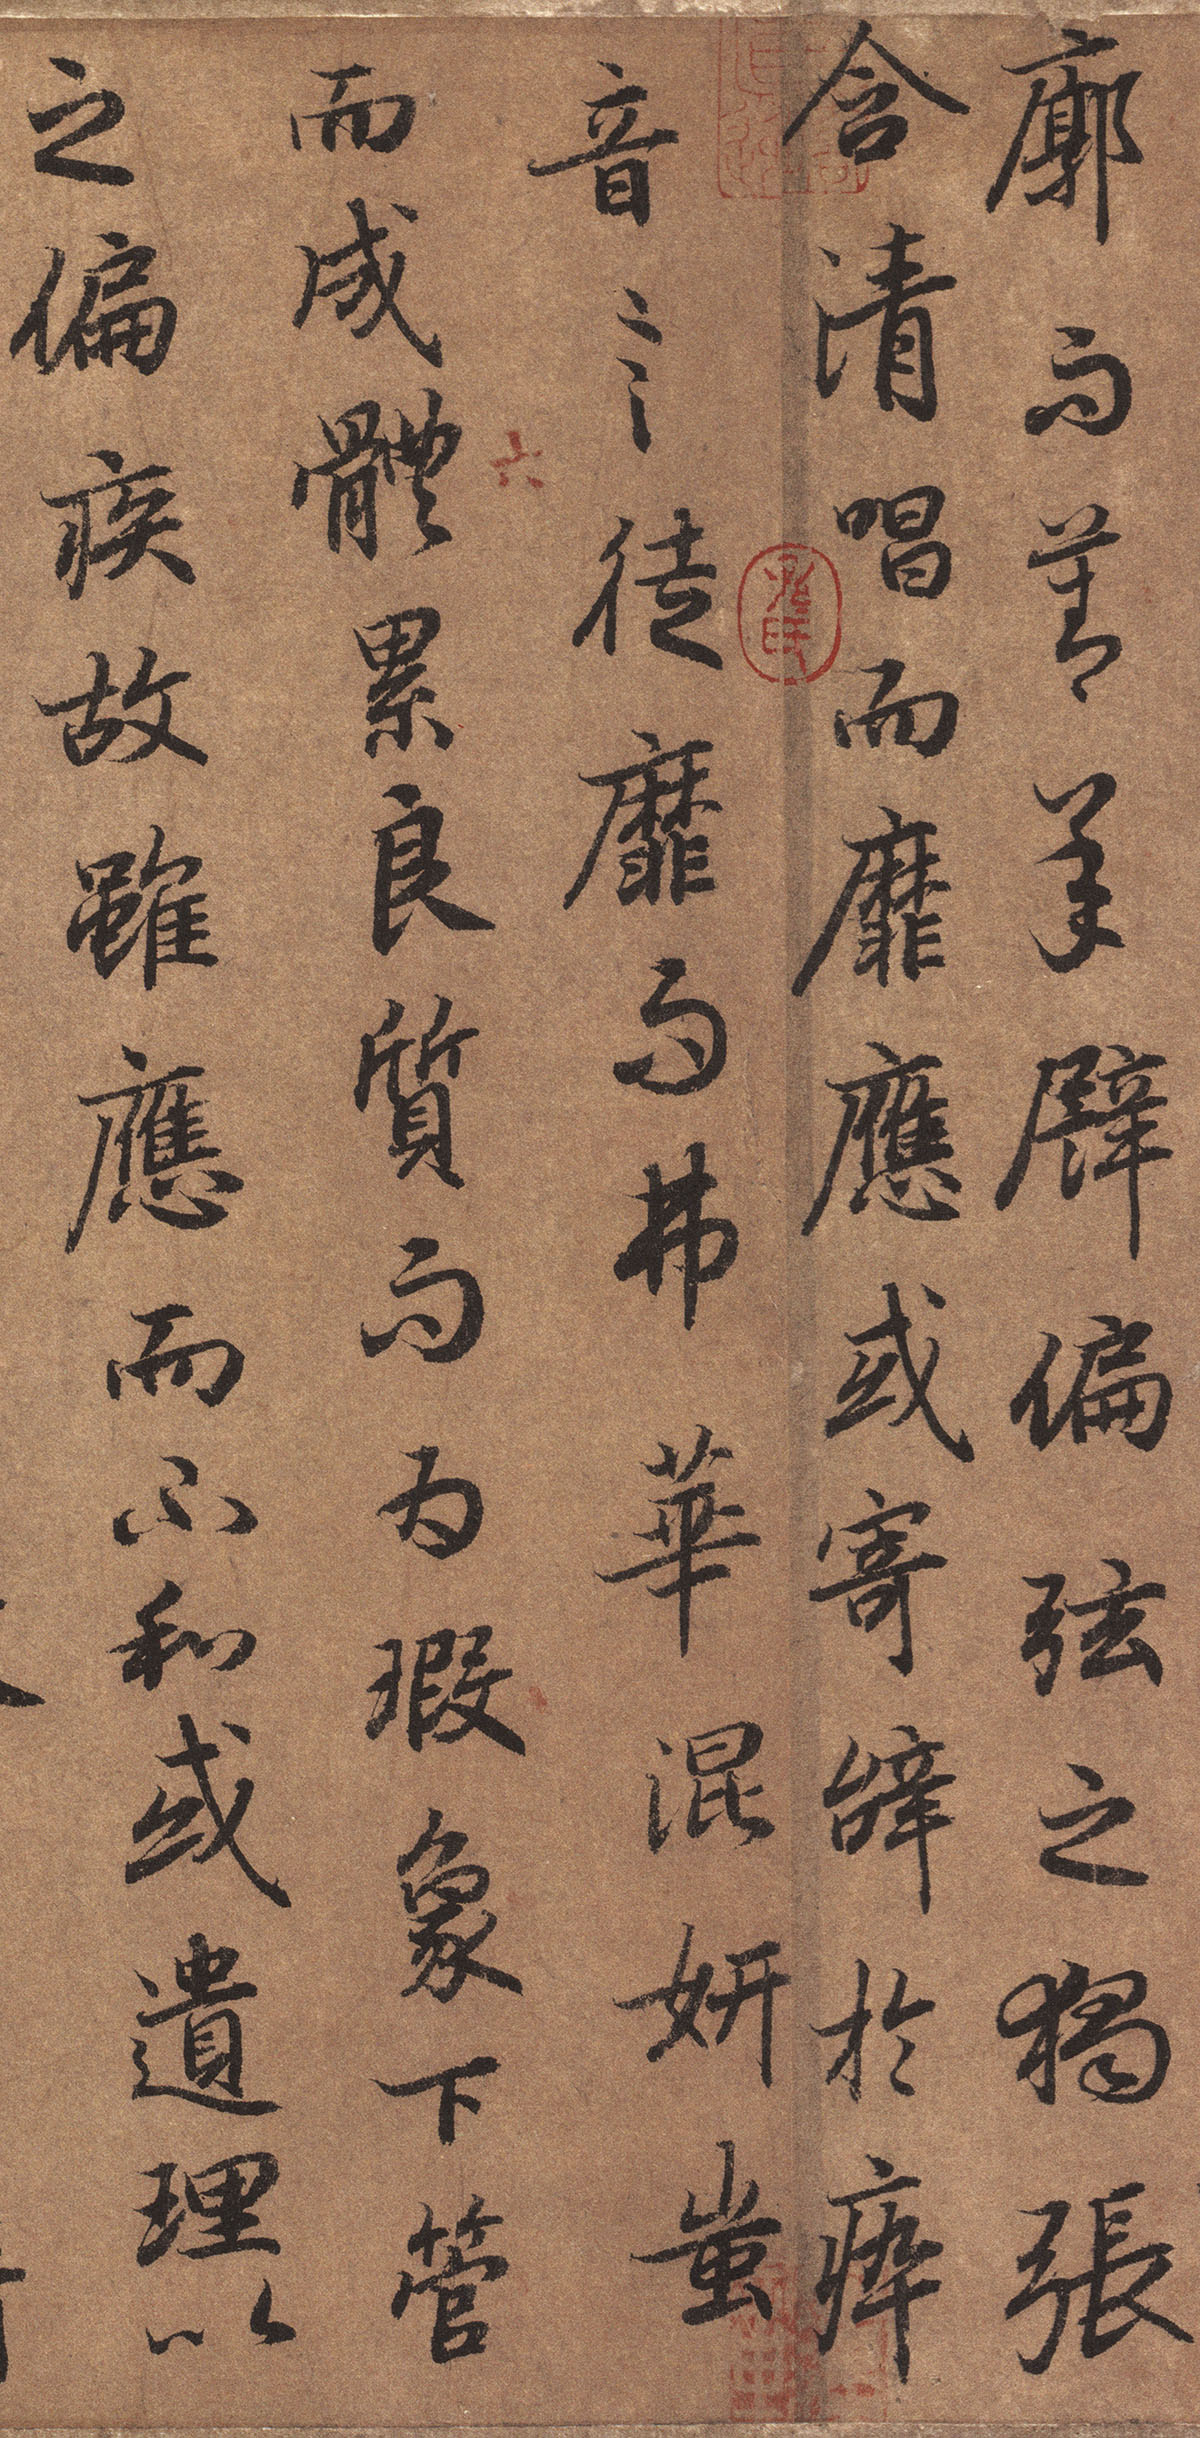 廓而莫承譬偏弦之獨張
含清唱而靡應或寄辭於瘁
音言徒靡而弗華混妍蚩
而成體累良質而為瑕象下管
之偏疾故雖應而不和或遺理以
六